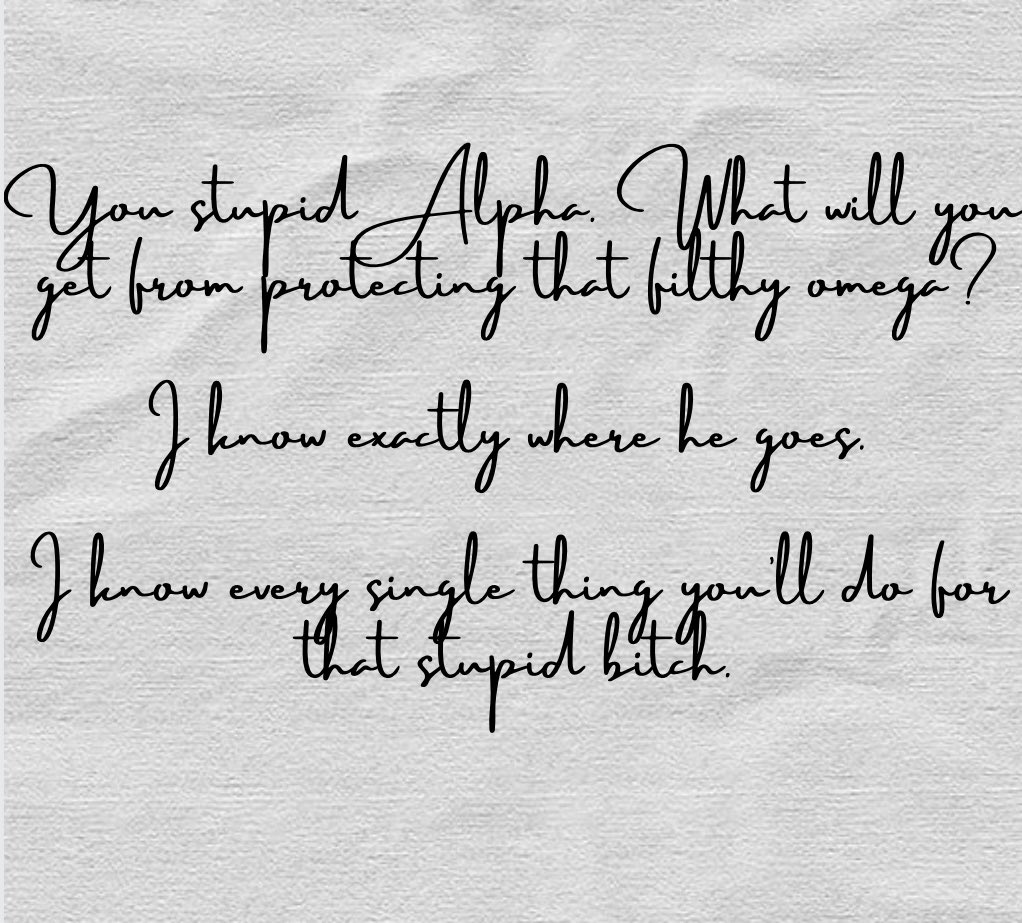 You stupid Alpha. What will you
get from protecting that filthy omega?
I know exactly where he goes.
I know every single thing you'll do for
that stupid bitch.